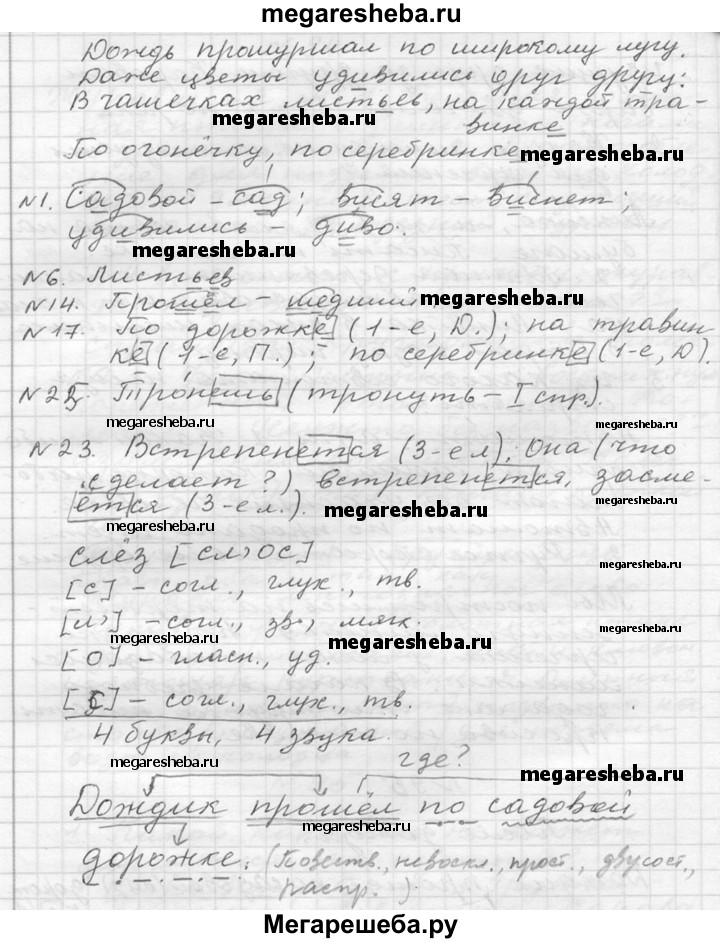 megaresheba.ru
Дождь прошуршал по широкому лугу.
Даже цветы удивились друг другу:
В чашечках листьев, на каждой тра-
megaresheba.ru
винке
По огонёчку, по серебринке
megaresheba.ru
№1. Садовой – сад; висят – виснет;
удивились – диво.
megaresheba.ru
№6. Листьев
№14. Прошёл – шедший
megaresheba.ru
№17. По дорожке (1-е, Д.); на травин-
ке (1-е, П.); по серебринке (1-е, Д).
megaresheba.ru
№22. Тронешь (тронуть – I спр.).
megaresheba.ru
megaresheba.ru
№23. Встрепенется (3-е л), Она (что
сделает?) встрепенется, засме-
ётся (3-е л.).
megaresheba.ru
megaresheba.ru
megaresheba.ru
слёз [сл,ос]
[с] – согл., глух., тв.
[л,] – согл., зв., мягк.
megaresheba.ru
megaresheba.ru
megaresheba.ru
[о] – гласн., уд.
[с] – согл., глух., тв.
4 буквы, 4 звука.
где?
megaresheba.ru
megaresheba.ru
Дождик прошёл по садовой
megaresheba.ru
дорожке. (Повеств., невоскл., прост., двусост.,
распр.)
megaresheba.ru
Мегарешеба.ру